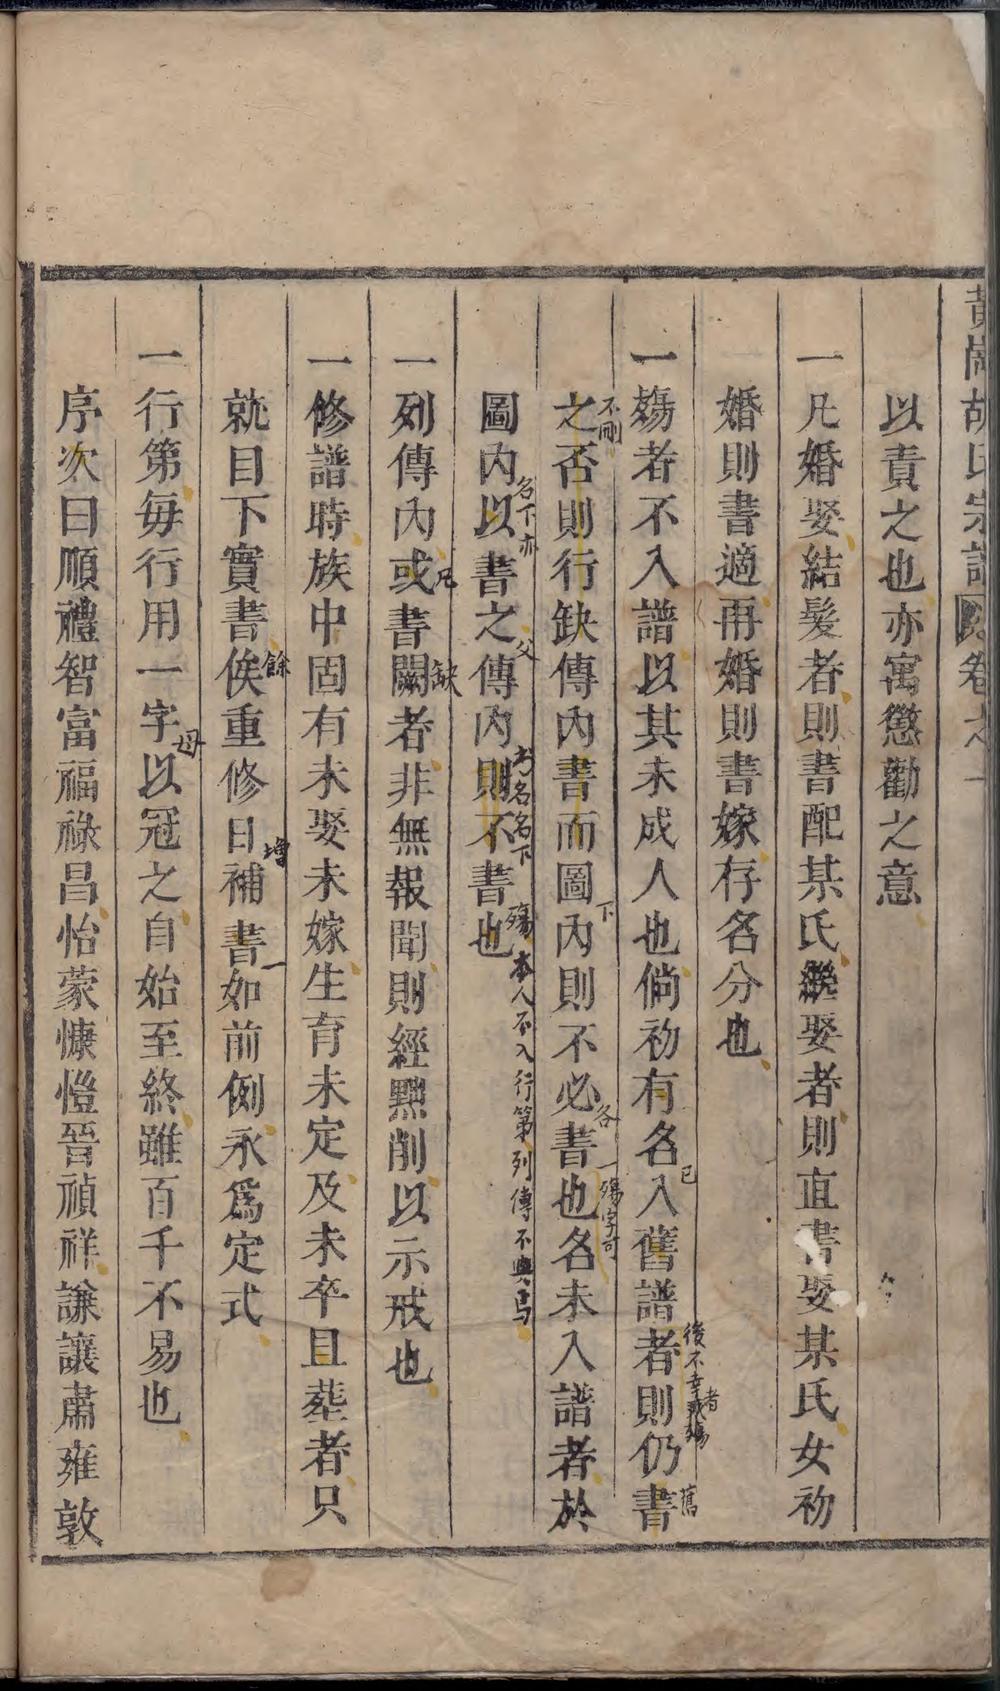 黃岡胡氏宗譜 卷之一
以責之也亦寓懲勸之意
一凡婚娶結髮者則書配某氏繼娶者則直書娶某氏女初
婚則書適再婚則書嫁存名分也
一殤者不入譜以其未成人也倘初有名入舊譜者則仍書
已
後不幸或殤者
舊
之否則行缺傳內書而圖內則不必書也名未入譜者於
不刪
下
各
一殤字可
圖內以書之傳內則不書也
名下亦
父
名下
殤
本人不入行第列傳不與焉
一列傳內或書闕者非無報聞則經黜削以示戒也
凡
缺
一修譜時族中固有未娶未嫁生育未定及未卒且葬者只
就目下實書俟重修日補書如前例永爲定式
餘
增
一
一行第每行用一字以冠之自始至終雖百千不易也
母
序次曰順禮智富福祿昌怡蒙慷愷晉禎祥謙讓肅雍敦